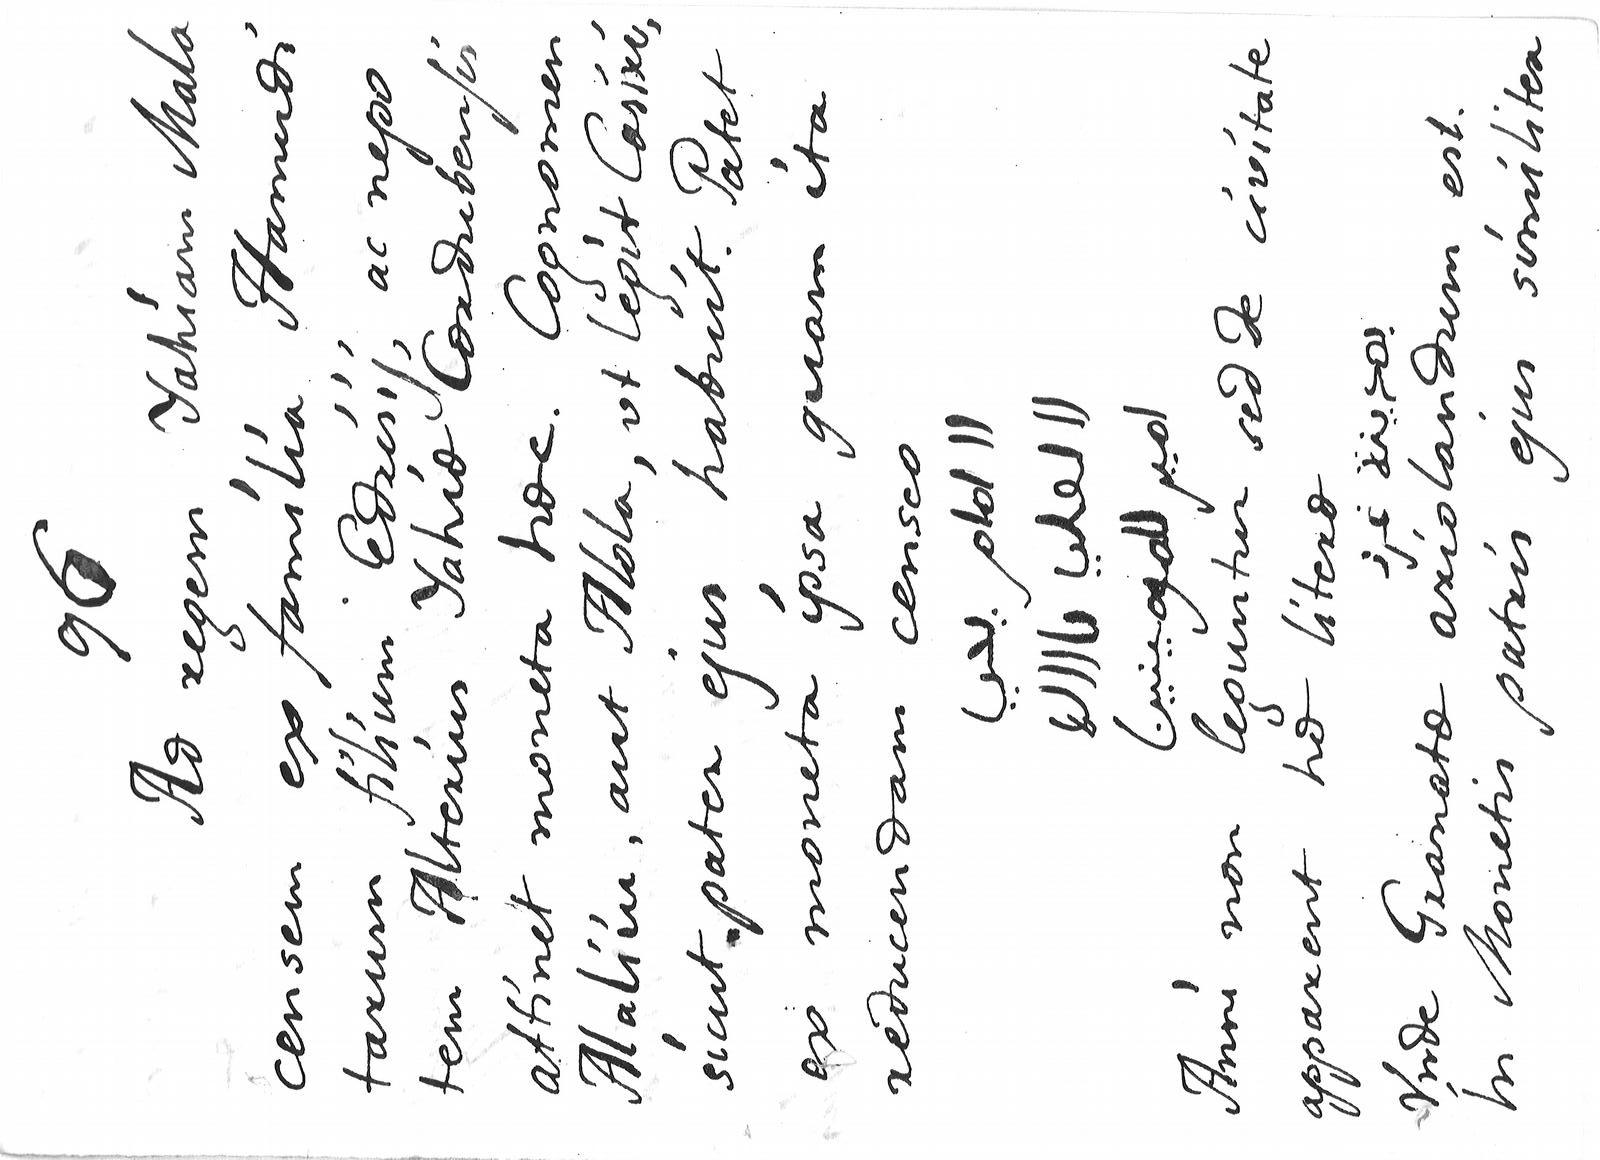 96
Ad regem Yahiam Mala
censem ex familia Hamudi
tarum filium Edrisii, ac nepo
tem Alterius Yahiæ Cordubensis
attinet moneta hæc. Cognomen
Aلaliu, aut Alola, ut legit Casiri,
sicut pater ejus habuit. Patet
ex moneta ipsa quam ita
reducendam censeo
الامام يحيى
العلى بالله
امير المومنين
Anni non leguntur sed de civitate
apparent hæ literæ
Unde Granatæ ariolandum est.
In Monetis patris ejus similiter